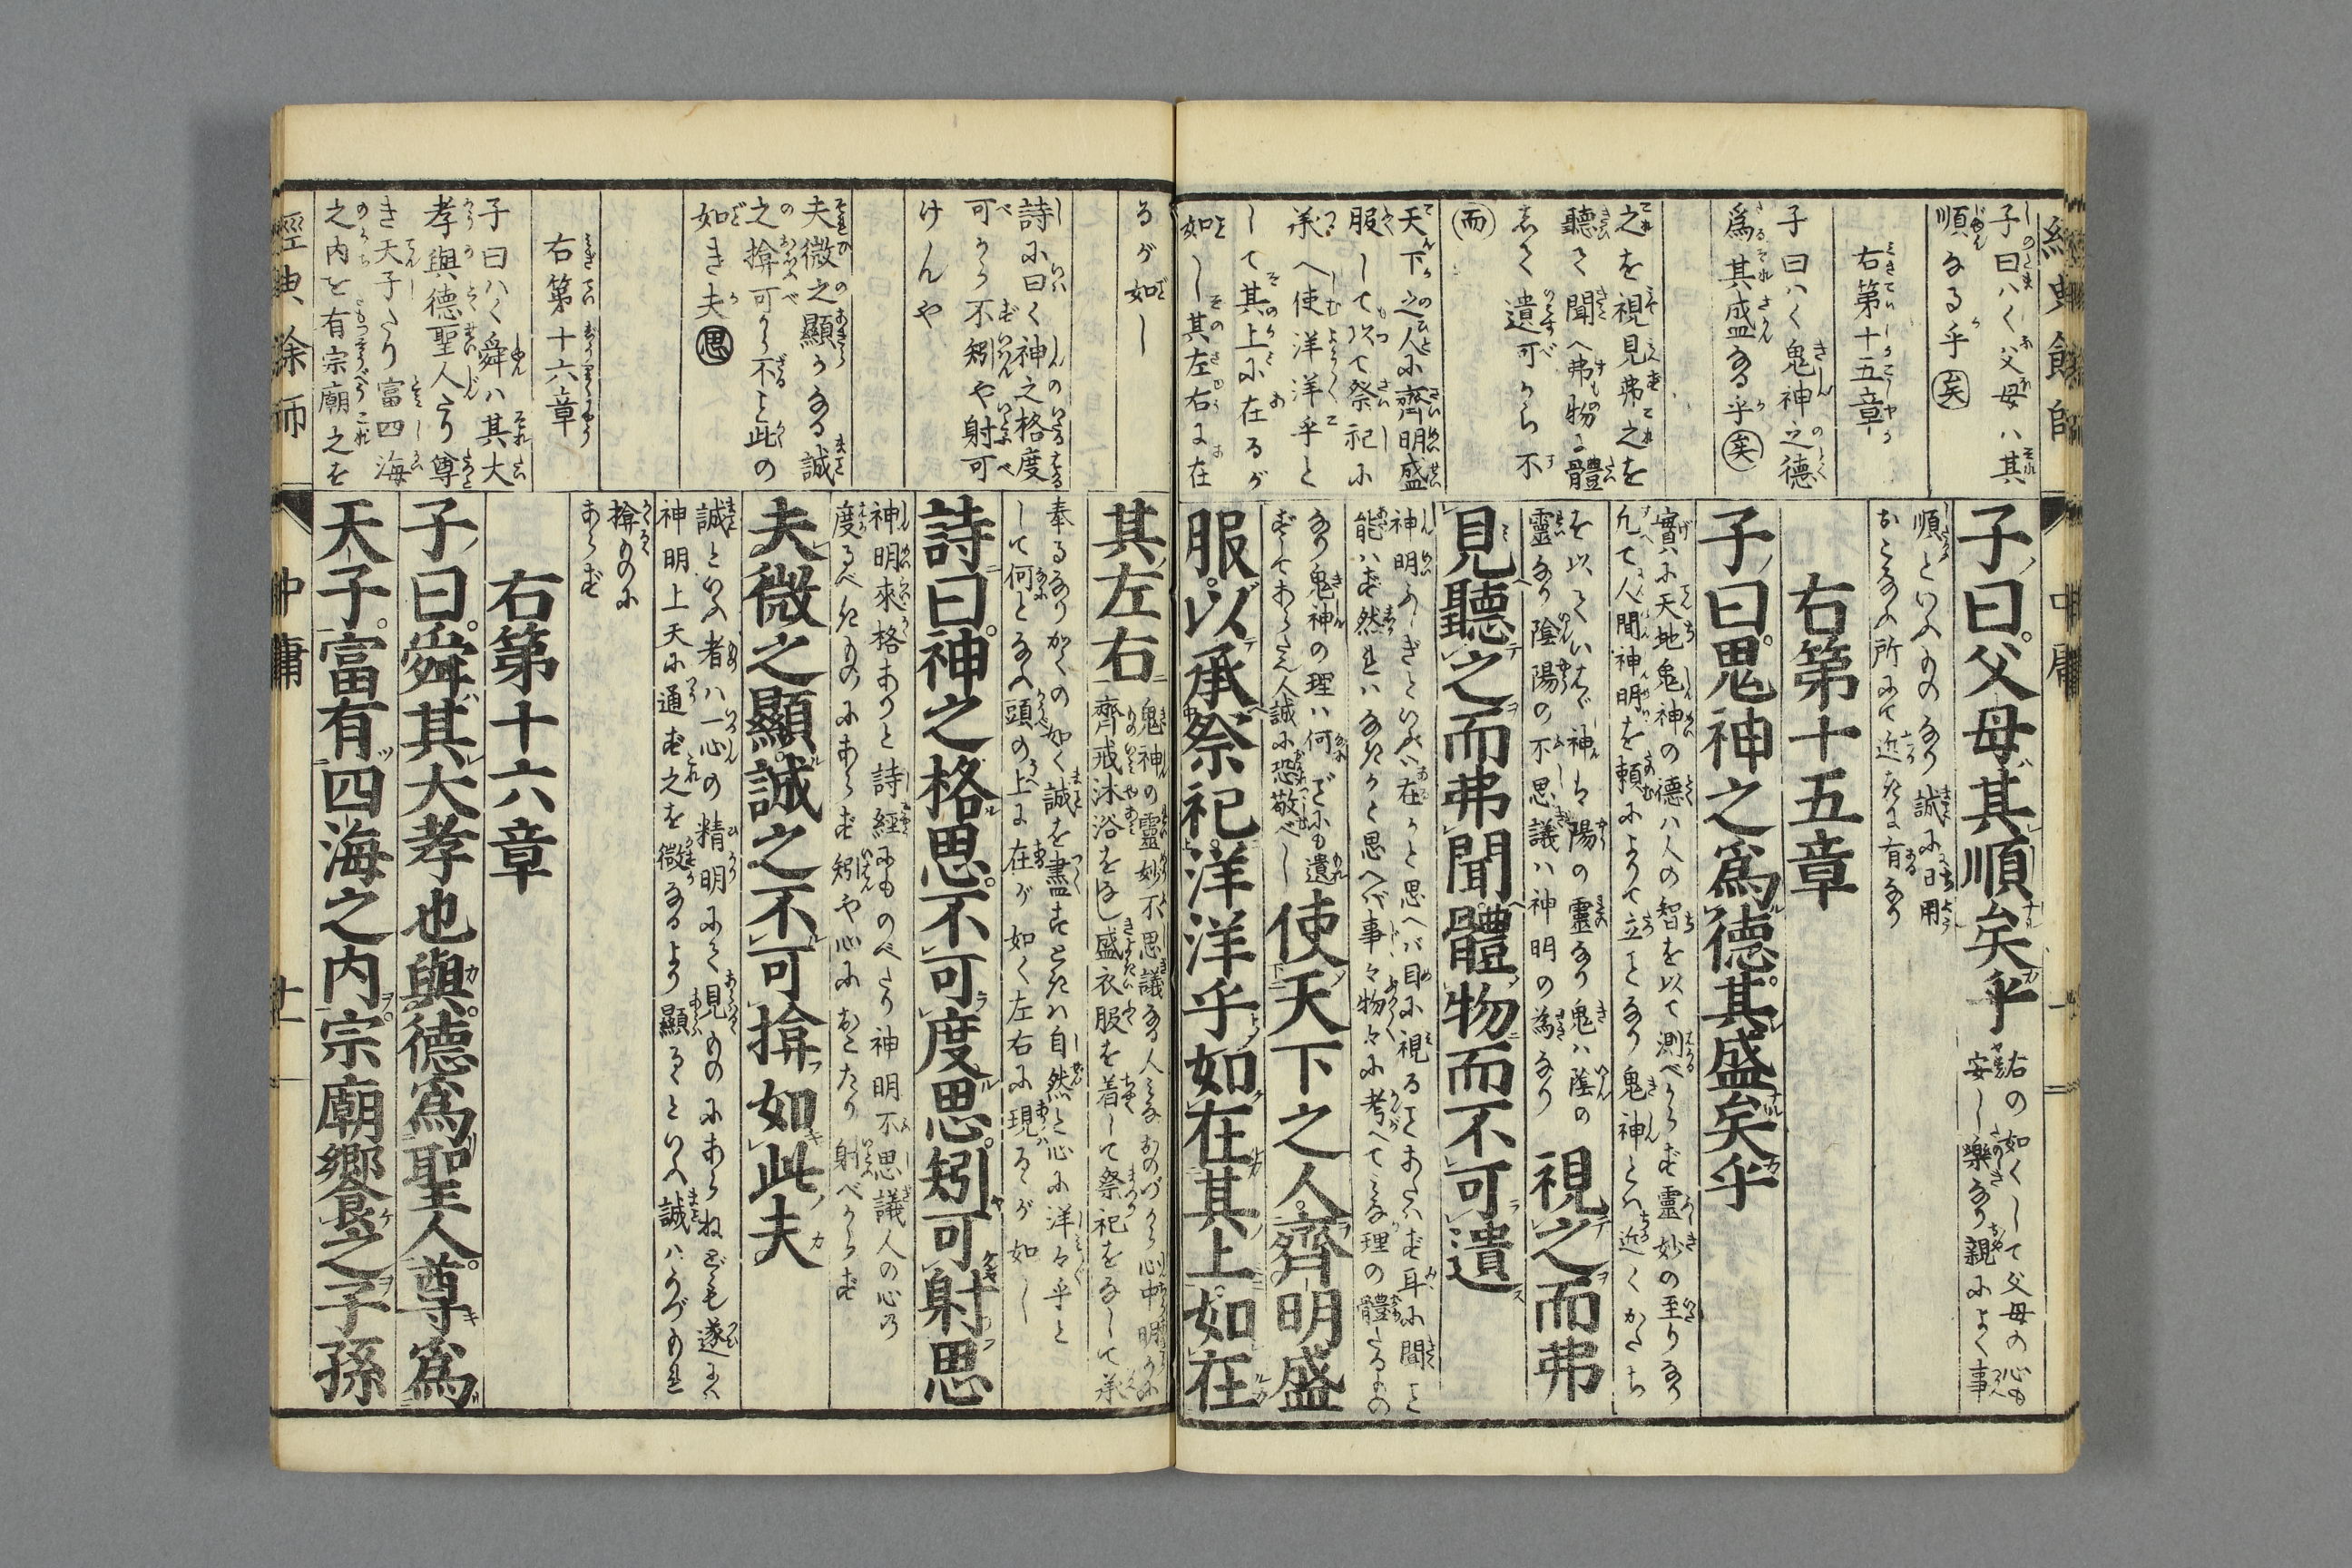 經典餘師
中庸
子曰ハく父母ハ其
順なる乎矣
右第十五章
子曰ハく鬼神之德
爲其盛なる乎矣
之を視見弗之を
聽て聞へ弗物に體
遺可から不
而
天下之人に齊明盛
服して以て祭祀に
承へ使洋洋乎と
して其上に在るが
如し其左右に在
子曰父母其順矣乎
右の如くして父母の心も
安し樂なり親によく事
順といふものなり誠に日用
おこなふ所にて近たに有なり
右第十五章
子曰鬼神之爲德其盛矣乎
實に天地鬼神の德ハ人の智を以て測べからず靈妙の至りなり
凡て人間神明を頼によりて立となり鬼神とハ近くかたち
を以ていはゞ神は陽の靈なり鬼ハ陰の
靈なり陰陽の不思議ハ神明の為なり
視之而弗
見聽之而弗聞體物而不可遺
神明ふしぎといへバ在かと思へバ目に視ることあたはず耳に聞こと
能ハず然れハなきかと思へバ事々物々に考へてみな理の體たるもの
なり鬼神の理ハ何ごにも遺
ずしてあらたん人誠に恐敬べし
使天下之人齊明盛
服以承祭祀洋洋乎如在其上如在
るが如し
詩に曰く神之格度
可から不矧や射可
けんや
夫微之顯かなる誠
之揜可から不こと此の
如き夫思
右第十六章
子曰ハく舜ハ其大
孝與德聖人たり尊
き天子たり富四海
之内を有宗廟之を
其左右
鬼神の靈妙不思議なる人みなおのづから心中明らかに
齊戒沐浴をなし盛衣服を着して祭祀をなして承
奉るなりかくの如く誠を盡すときハ自然と心に洋々乎と
して何となふ頭の上に在が如く左右に現るゝが如し
詩曰神之格思不可度思矧可射思
神明來格ありと詩經にものべたり神明不思議人の心の
度るべきものにあらず矧や心におこたり射べからず
夫微之顯誠之不可揜如此夫
誠といふ者ハ一心の精明にて見ものにあらねども遂にハ
神明上天に通ず之を微なるより顯るゝといへ誠ハかづもれ
揜ものに
あらず
右第十六章
子曰舜其大孝也與德爲聖人尊爲
天子富有四海之内宗廟饗之子孫
經典余師
中庸
十一